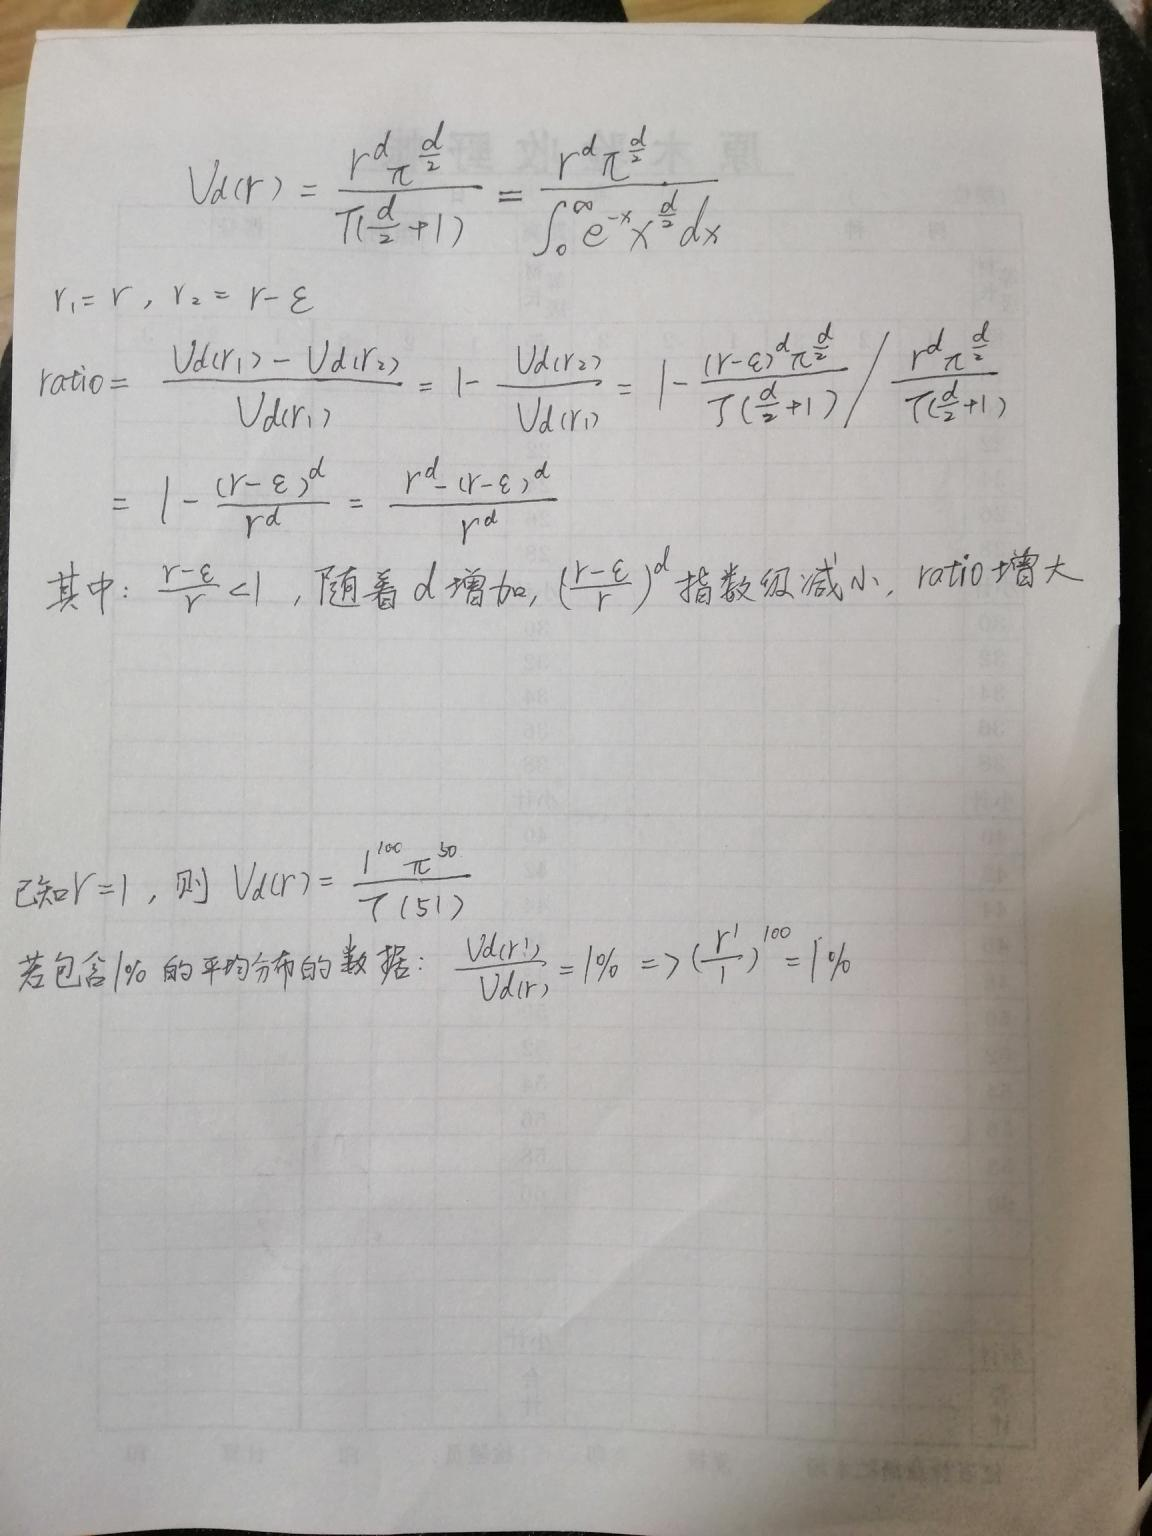 V_d(r) = \frac{r^d π^{\frac{d}{2}}}{Γ(\frac{d}{2}+1)} = \frac{r^d π^{\frac{d}{2}}}{\int_0^∞ e^{-x} x^{\frac{d}{2}} dx}
r_1 = r , r_2 = r-ε
ratio = \frac{V_d(r_1) - V_d(r_2)}{V_d(r_1)} = 1 - \frac{V_d(r_2)}{V_d(r_1)} = 1 - \frac{(r-ε)^d π^{\frac{d}{2}}}{Γ(\frac{d}{2}+1)} / \frac{r^d π^{\frac{d}{2}}}{Γ(\frac{d}{2}+1)}
= 1 - \frac{(r-ε)^d}{r^d} = \frac{r^d - (r-ε)^d}{r^d}
其中: \frac{r-ε}{r} < 1 , 随着 d 增加, (\frac{r-ε}{r})^d 指数级减小, ratio 增大
已知 r = 1 , 则 V_d(r) = \frac{1^{100} π^{50}}{Γ(51)}
若包含1%的平均分布的数据: \frac{V_d(r')}{V_d(r)} = 1% => (\frac{r'}{1})^{100} = 1%